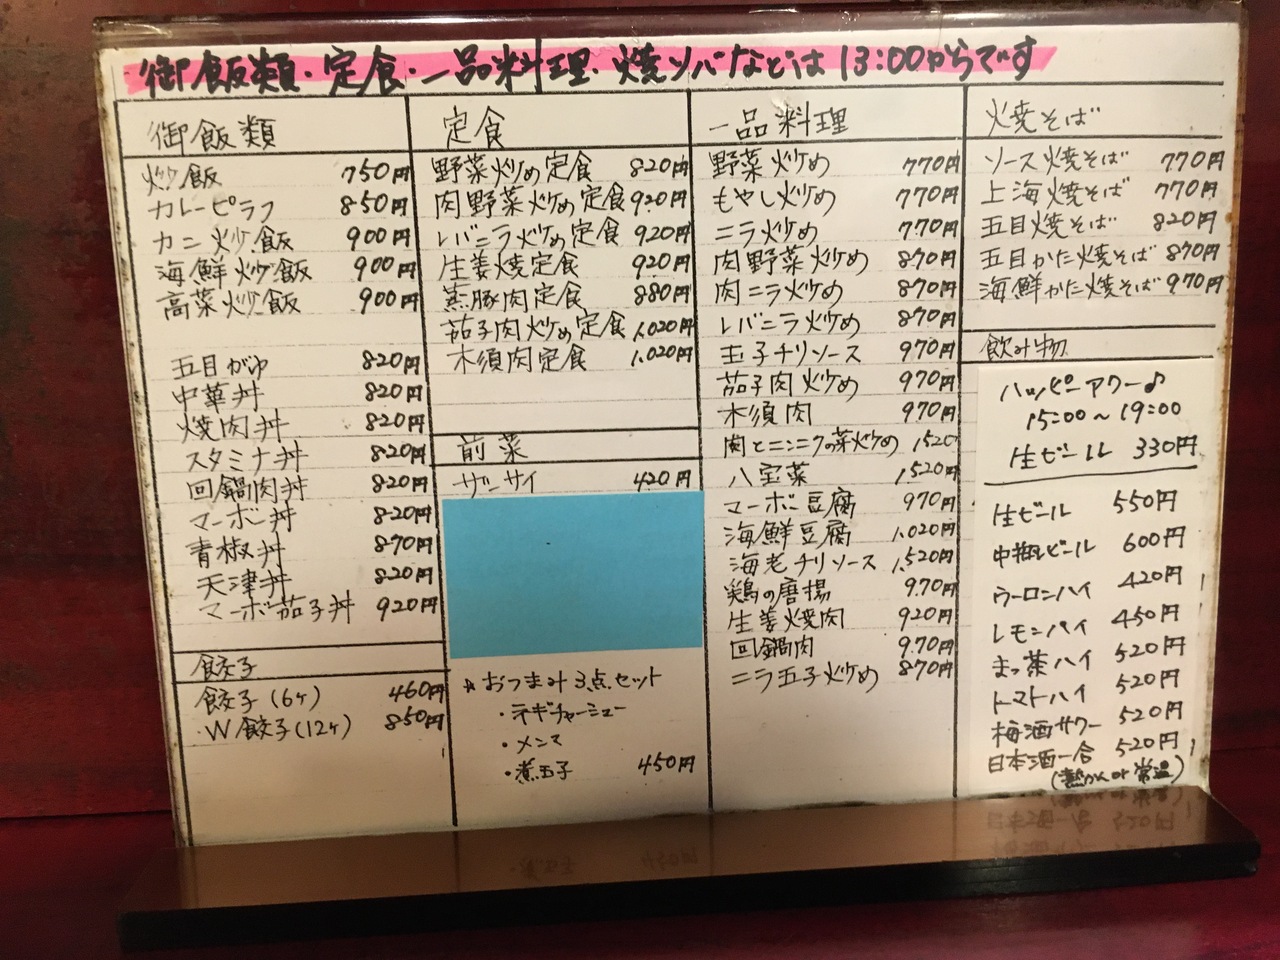 御飯類・定食・一品料理・焼ソバなどは13:00からです
御飯類
炒飯 750円
カレーピラフ 850円
カニ炒飯 900円
海鮮炒飯 900円
高菜炒飯 900円
五目がゆ 820円
中華丼 820円
焼肉丼 820円
スタミナ丼 820円
回鍋肉丼 820円
マーボー丼 820円
青椒丼 870円
天津丼 820円
マーボ茄子丼 920円
餃子
餃子(6ケ) 460円
・W餃子(12ケ) 850円
定食
野菜炒め定食 820円
肉野菜炒め定食 920円
レバニラ炒め定食 920円
生姜焼定食 920円
蒸豚肉定食 880円
茄子肉炒め定食 1,020円
木須肉定食 1,020円
前菜
ザーサイ 420円
☆おつまみ3点セット
・ネギチャーシュー
・メンマ
・煮玉子 450円
一品料理
野菜炒め 770円
もやし炒め 770円
ニラ炒め 770円
肉野菜炒め 870円
肉ニラ炒め 870円
レバニラ炒め 870円
玉子チリソース 970円
茄子肉炒め 970円
木須肉 970円
肉とニンニクの芽炒め 1,520
八宝菜 1,520円
マーボー豆腐 970円
海鮮豆腐 1,020円
海老チリソース 1,520円
鶏の唐揚 970円
生姜焼肉 920円
回鍋肉 970円
ニラ玉子炒め 870円
焼そば
ソース焼そば 770円
上海焼そば 770円
五目焼そば 820円
五目かた焼そば 870円
海鮮かた焼そば 970円
飲み物
ハッピーアワー♪
15:00〜19:00
生ビール 330円
生ビール 550円
中瓶ビール 600円
ウーロンハイ 420円
レモンハイ 450円
まっ茶ハイ 520円
トマトハイ 520円
梅酒サワー 520円
日本酒一合 520円
(熱かん or 常温)